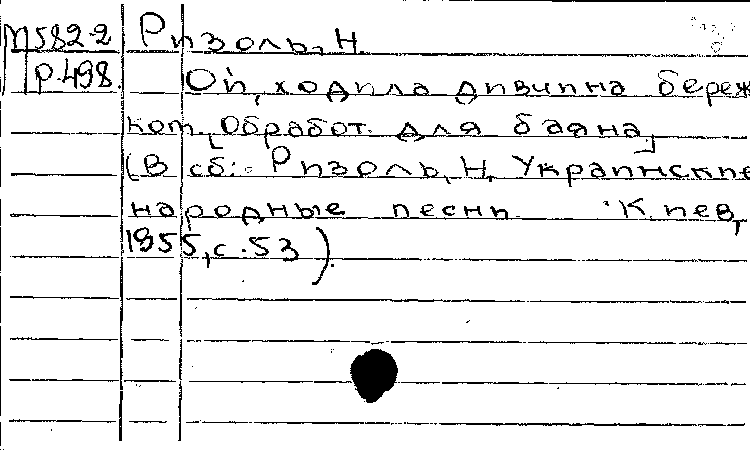 М582-2 Ризоль, Н.
Р.498. Ой, ходила дивчина береж
ком. [Обработ. для баяна]
(В сб: Ризоль, Н. Украинские
народные песни. Киев,
1955, с. 53).